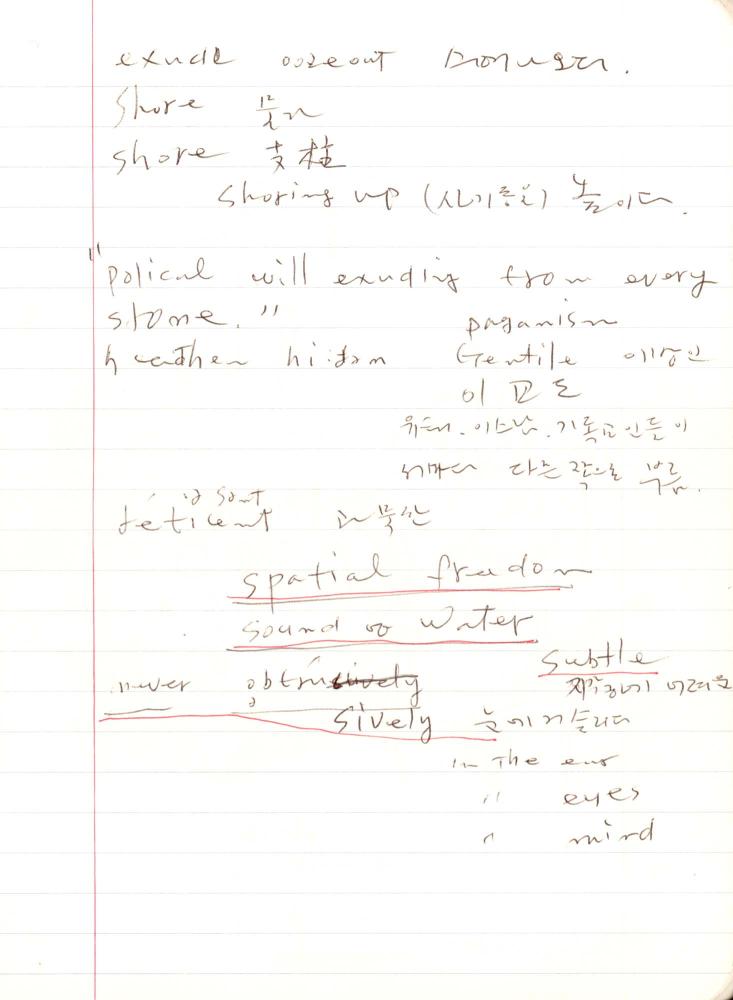 exude oozeout 배어나오다.
shore 물가
shore 支柱
shoring up (사기등을) 높이다.
"polical will exuding from every
stone."
paganism
heathen hi:dən Gentile 이방인
이교도
유태. 이스람. 기독교인들이
서마다 다른 쪽으로 부름.
reticent 과묵한
spatial freedom
sound of water
subtle
never obtru
sively 눈에 거슬리다
in the ear
" eyes
" mind